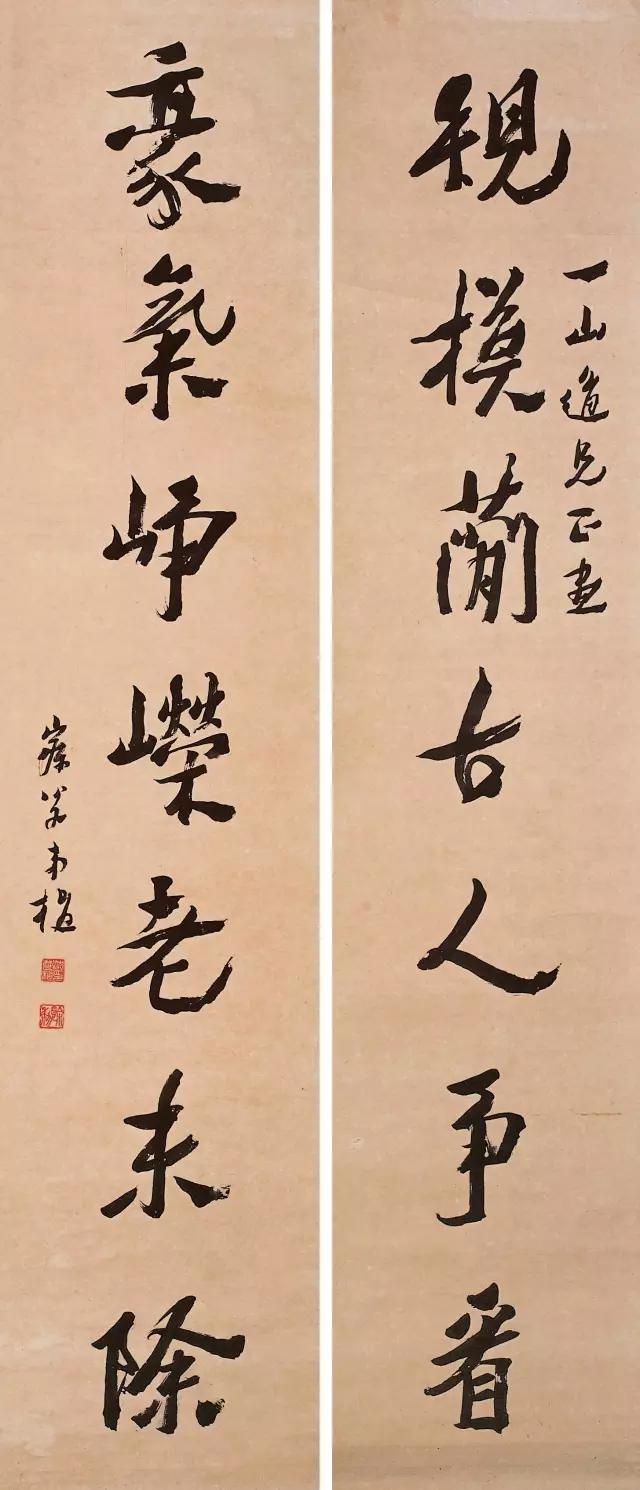 規模簡古人争看
一山道兄正
豪氣崢嶸老未除
寐叟弟植